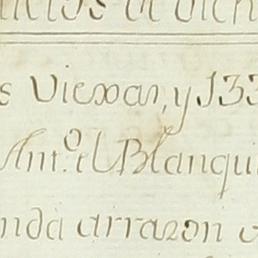 s Viexas, y 133
Ant.º el Blanqui
nda arrazon